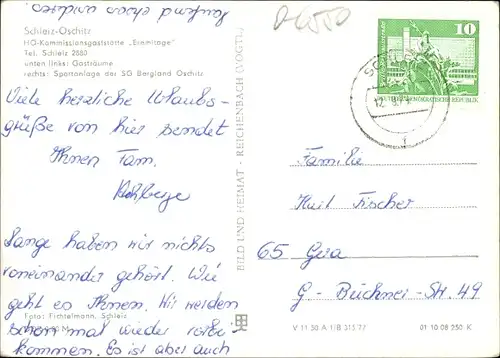 laufend etwas anderes
D6550
Schleiz-Oschitz
HO-Kommissionsgaststätte „Eremitage"
Tel. Schleiz 2880
unten links: Gasträume
rechts: Sportanlage der SG Bergland Oschitz
Viele herzliche Urlaubs-
grüße von hier sendet
Ihnen Fam.
Lange haben wir nichts
voneinander gehört. Wie
geht es Ihnen. Wir werden
schon mal wieder
kommen. Es ist aber auch
Foto: Fichtelmann, Schleiz
BILD UND HEIMAT · REICHENBACH (VOGTL)
10
DEUTSCHE DEMOKRATISCHE REPUBLIK
Familie
Fischer
65 Gera
G.-Büchner-Str. 49
V 11 50 A 1/B 315/77
01 10 08 250 K